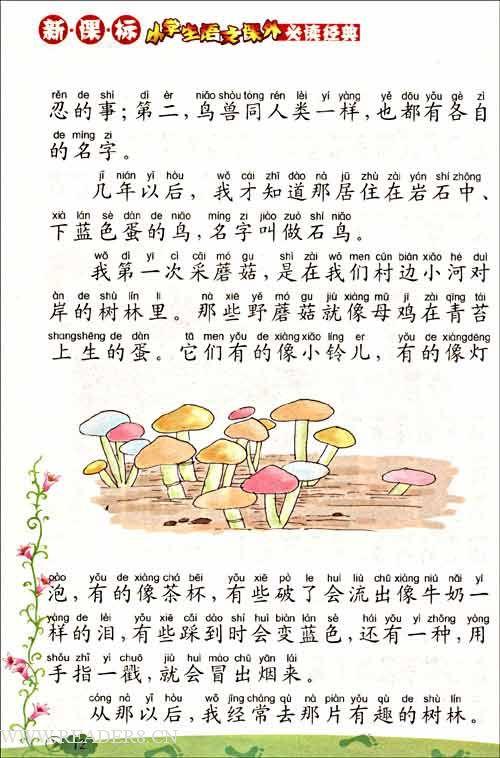 新·课·标 小学生语文课外必读经典
rěn de shì dì èr niǎo shòu tóng rén lèi yí yàng yě dōu yǒu gè zì
忍的事；第二，鸟兽同人类一样，也都有各自
de míng zi
的名字。
jǐ nián yǐ hòu wǒ cái zhī dào nà jū zhù zài yán shí zhōng
几年以后，我才知道那居住在岩石中、
xià lán sè dàn de niǎo míng zi jiào zuò shí niǎo
下蓝色蛋的鸟，名字叫做石鸟。
wǒ dì yī cì cǎi mó gu shì zài wǒ men cūn biān xiǎo hé duì
我第一次采蘑菇，是在我们村边小河对
àn de shù lín lǐ nà xiē yě mó gu jiù xiàng mǔ jī zài qīng tái
岸的树林里。那些野蘑菇就像母鸡在青苔
shang shēng de dàn tā men yǒu de xiàng xiǎo líng er yǒu de xiàng dēng
上生的蛋。它们有的像小铃儿，有的像灯
pào yǒu de xiàng chá bēi yǒu xiē pò le huì liú chū xiàng niú nǎi yí
泡，有的像茶杯，有些破了会流出像牛奶一
yàng de lèi yǒu xiē cǎi dào shí huì biàn lán sè hái yǒu yì zhǒng yòng
样的泪，有些踩到时会变蓝色，还有一种，用
shǒu zhǐ yì chuō jiù huì mào chū yān lái
手指一戳，就会冒出烟来。
cóng nà yǐ hòu wǒ jīng cháng qù nà piàn yǒu qù de shù lín
从那以后，我经常去那片有趣的树林。
WWW.READER8.CN
12